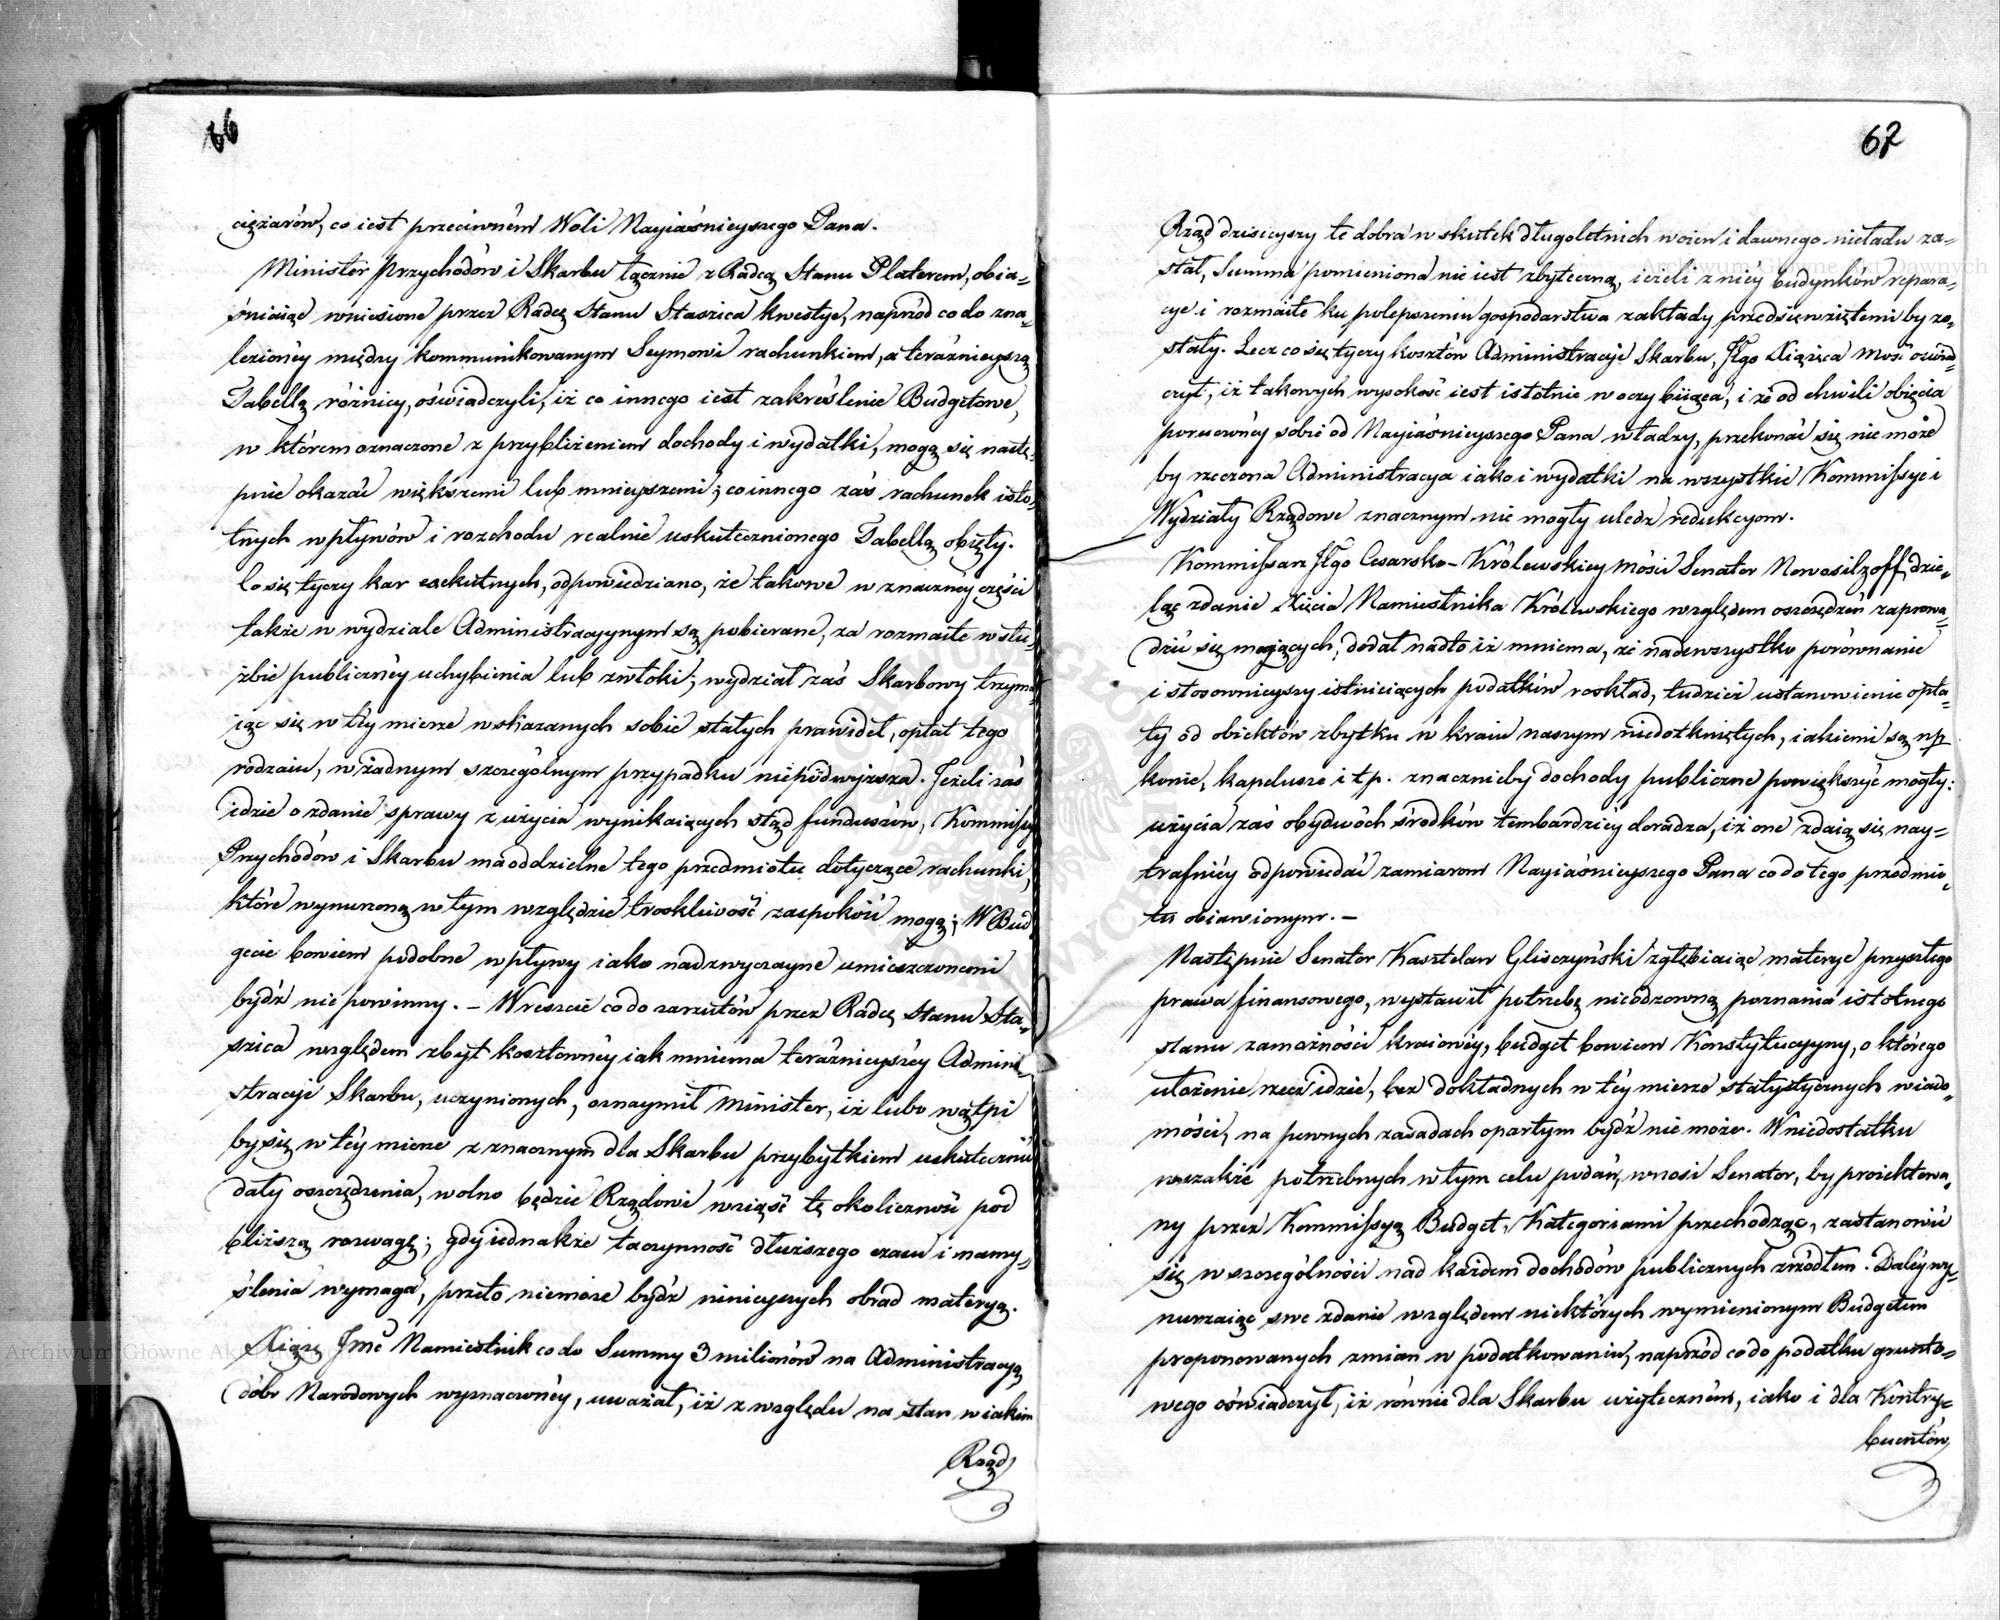 66
ciężarów, co iest przeciwném Woli Nayiaśnieyszego Pana.
Minister Przychodów i Skarbu łącznie z Radcą Stanu Platerem, obia=
śniaiąc wniesione przez Radcę Stanu Staszica kwestye, naprzód co do zna=
lezionéy między kommunikowanym Seymowi rachunkiem, a teraźnieyszą
Tabellą różnicy, oświadczyli, iż co innego iest zakréślenie Budgetowe,
w którem oznaczone z przybliżeniem dochody i wydatki, mogą się nastę=
pnie okazać większemi lub mnieyszemi; co innego zaś rachunek isto=
tnych wpływów i rozchodu realnie uskutecznionego Tabellą obięty.
Co się tyczy kar exekutnych, odpowiedziano, że takowe w znacznéy części
także w wydziale Administracyynym są pobierane, za rozmaite w słu=
żbie publicznéy uchybienia lub zwłoki; wydział zaś Skarbowy trzyma
iąc się w téy mierze wskazanych sobie stałych prawideł, opłat tego
rodzaiu, w żadnym szczególnym przypadku niepodwyższa. Jeżeli zaś
idzie o zdanie sprawy z użycia wynikaiących stąd funduszów, Kommissya
Przychodów i Skarbu ma oddzielne tego przedmiotu dotyczące rachunki,
które wynurzoną w tym względzie troskliwość zaspokoić mogą; W Bud
gecie bowiem podobne wpływy iako nadzwyczayne umieszczonemi
bydź nie powinny. – Wreszcie co do zarzutów przez Radcę Stanu Sta=
szica względem zbyt kosztownéy iak mniema teraźnieyszéy Admini=
stracyi Skarbu, uczynionych, oznaymił Minister, iż lubo wątpi
by się w téy mierze z znacznym dla Skarbu przybytkiem uskutecznić
dały oszczędzenia, wolno będzie Rządowi wziąść tę okoliczność pod
bliższą rozwagę; gdy iednakże ta czynność dłuższego czasu i namy=
ślenia wymaga, przeto niemoże bydź ninieyszych obrad materyą.
Xiążę Jmć Namiestnik co do Summy 3 milionów na Administracyą
dóbr Narodowych wyznaczonéy, uważał, iż z względu na stan w iakim
Rząd
67
Rząd dzisieyszy te dobra w skutek długoletnich woien i dawnego nieładu za=
stał, Summa pomieniona nie iest zbyteczną, ieżeli z niéy budynków repara=
cye i rozmaite ku polepszeniu gospodarstwa zakłady przedsięwziętemi by zo=
stały. Lecz co się tyczy kosztów Administracyi Skarbu, Jego Xiążęca Mość oświad=
czył, iż takowych wysokość iest istotnie w oczy biiąca, i że od chwili obięcia
poruczonéy sobie od Nayiaśnieyszego Pana władzy, przekonać się nie może
by rzeczona Administracya iako i wydatki na wszystkie Kommissye i
Wydziały Rządowe znacznym nie mogły uledz redukcyom.
Kommissarz Jego Cesarsko-Królewskiey Mości Senator Nowosilzoff, dzie=
ląc zdanie Xięcia Namiestnika Królewskiego względem oszczędzeń zaprowa=
dzić się mających, dodał nadto iż mniema, że nadewszystko porównanie
i stosownieyszy istnieiących podatków rozkład, tudzież ustanowienie opła=
ty od obiektów zbytku w kraiu naszym niedotkniętych, iakiemi są np
konie, kapelusze i t.p. znacznieby dochody publiczne powiększyć mogły:
użycia zaś obydwóch środków tembardziéy doradza, iż one zdaią się nay=
trafniéy odpowiedać zamiarom Nayiaśnieyszego Pana co do tego przedmio=
tu obiawionym. –
Następnie Senator Kasztelan Gliszczyński zgłębiaiąc materye przyszłego
prawa finansowego, wystawił potrzebę nieodzowną poznania istotnego
stanu zamożności kraiowéy, budget bowiem Konstytucyyny, o którego
ułożenie rzecz idzie, bez dokładnych w téy mierze statystycznych wiado=
mości, na pewnych zasadach opartym bydź nie może. W niedostatku
wszakże potrzebnych w tym celu podań, wnosi Senator, by proiektowa=
ny przez Kommissyą Budget, Kategoriami przechodząc, zastanowić
się w szczególności nad każdem dochodów publicznych źródłem. Daléy wy=
nurzaiąc swe zdanie względem niektórych wymienionym Budgetem
proponowanych zmian w podatkowaniu, naprzód co do podatku grunto=
wego oświadczył, iż równie dla Skarbu użyteczném, iako i dla Kontry=
buentów
Archiwum Główne Akt Dawnych
Archiwum Główne Akt Dawnych